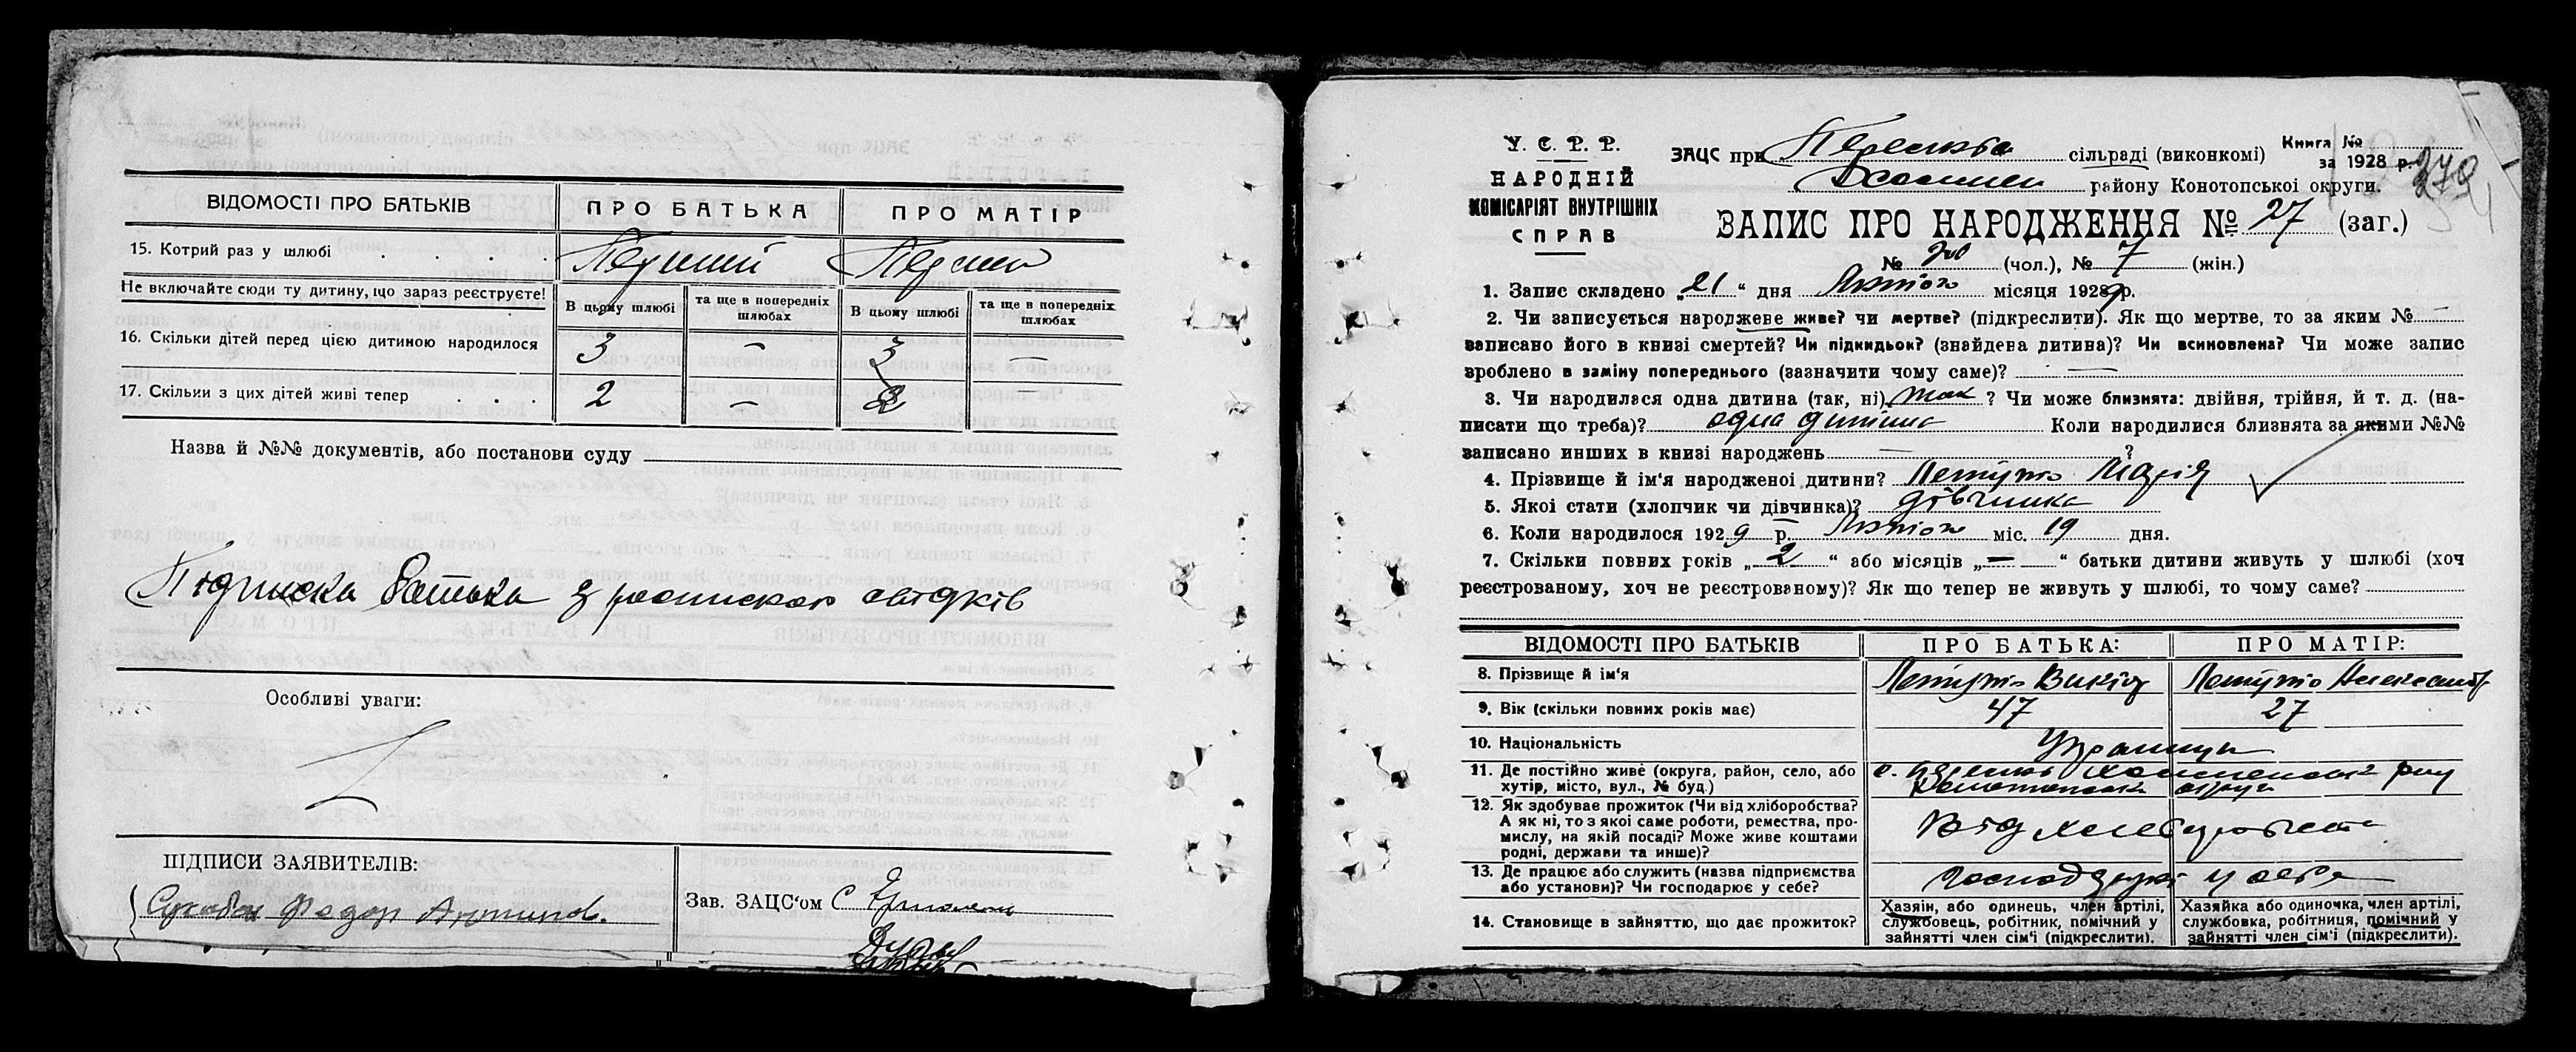 ВІДОМОСТІ ПРО БАТЬКІВ ПРО БАТЬКА ПРО МАТІР
15. Котрий раз у шлюбі . . . Перший Перший
Не включайте сюди ту дитину, що зараз реєструєте! В цьому шлюбі та ще в попередніх шлюбах В цьому шлюбі та ще в попередніх шлюбах
16. Скільки дітей перед цією дитиною народилося 3 — 3 —
17. Скільки з цих дітей живі тепер . . . 2 — 2 —
Назва й №№ документів, або постанови суду
Підписка батька з роспискою свідків
Особливі уваги:
ПІДПИСИ ЗАЯВИТЕЛІВ:
Федор
Зав. ЗАЦС'ом С
У. С. Р. Р.
НАРОДНІЙ
КОМІСАРІЯТ ВНУТРІШНІХ
СПРАВ
ЗАЦС при сільраді (виконкомі)
Книга №
за 1928 р.
району Конотопської округи.
ЗАПИС ПРО НАРОДЖЕННЯ № 27 (заг.)
№ (чол.), № 7 (жін.)
1. Запис складено „21“ дня Лютого місяця 1929 р.
2. Чи записується народжене живе? чи мертве? (підкреслити). Як що мертве, то за яким № —
записано його в книзі смертей? Чи підкидьок? (знайдена дитина)? Чи всиновлена? Чи може запис
зроблено в заміну попереднього (зазначити чому саме)? —
3. Чи народилася одна дитина (так, ні) так? Чи може близнята: двійня, трійня, й т. д. (на-
писати що треба)? одна дитина Коли народилися близнята за якими №№
записано инших в книзі народжень — ?
4. Прізвище й ім'я народженої дитини? Марія
5. Якої стати (хлопчик чи дівчинка)? дівчинка
6. Коли народилося 1929 р. Лютого міс. 19 дня.
7. Скільки повних років „2“ або місяців „—“ батьки дитини живуть у шлюбі (хоч
реєстрованому, хоч не реєстрованому)? Як що тепер не живуть у шлюбі, то чому саме?
ВІДОМОСТІ ПРО БАТЬКІВ ПРО БАТЬКА: ПРО МАТІР:
8. Прізвище й ім'я
9. Вік (скільки повних років має) 47 27
10. Національність Українці
11. Де постійно живе (округа, район, село, або
хутір, місто, вул., № буд.)
12. Як здобуває прожиток (Чи від хліборобства?
А як ні, то з якої саме роботи, ремества, про-
мислу, на якій посаді? Може живе коштами
родні, держави та инше)? Від хліборобства
13. Де працює або служить (назва підприємства
або установи)? Чи господарює у себе? господарює у себе
14. Становище в зайняттю, що дає прожиток?
Хазяін, або одинець, член артілі,
службовець, робітник, помічний у
зайнятті член сім'ї (підкреслити).
Хазяйка або одиночка, член артілі,
службовка, робітниця, помічний у
зайнятті член сім'ї (підкреслити).